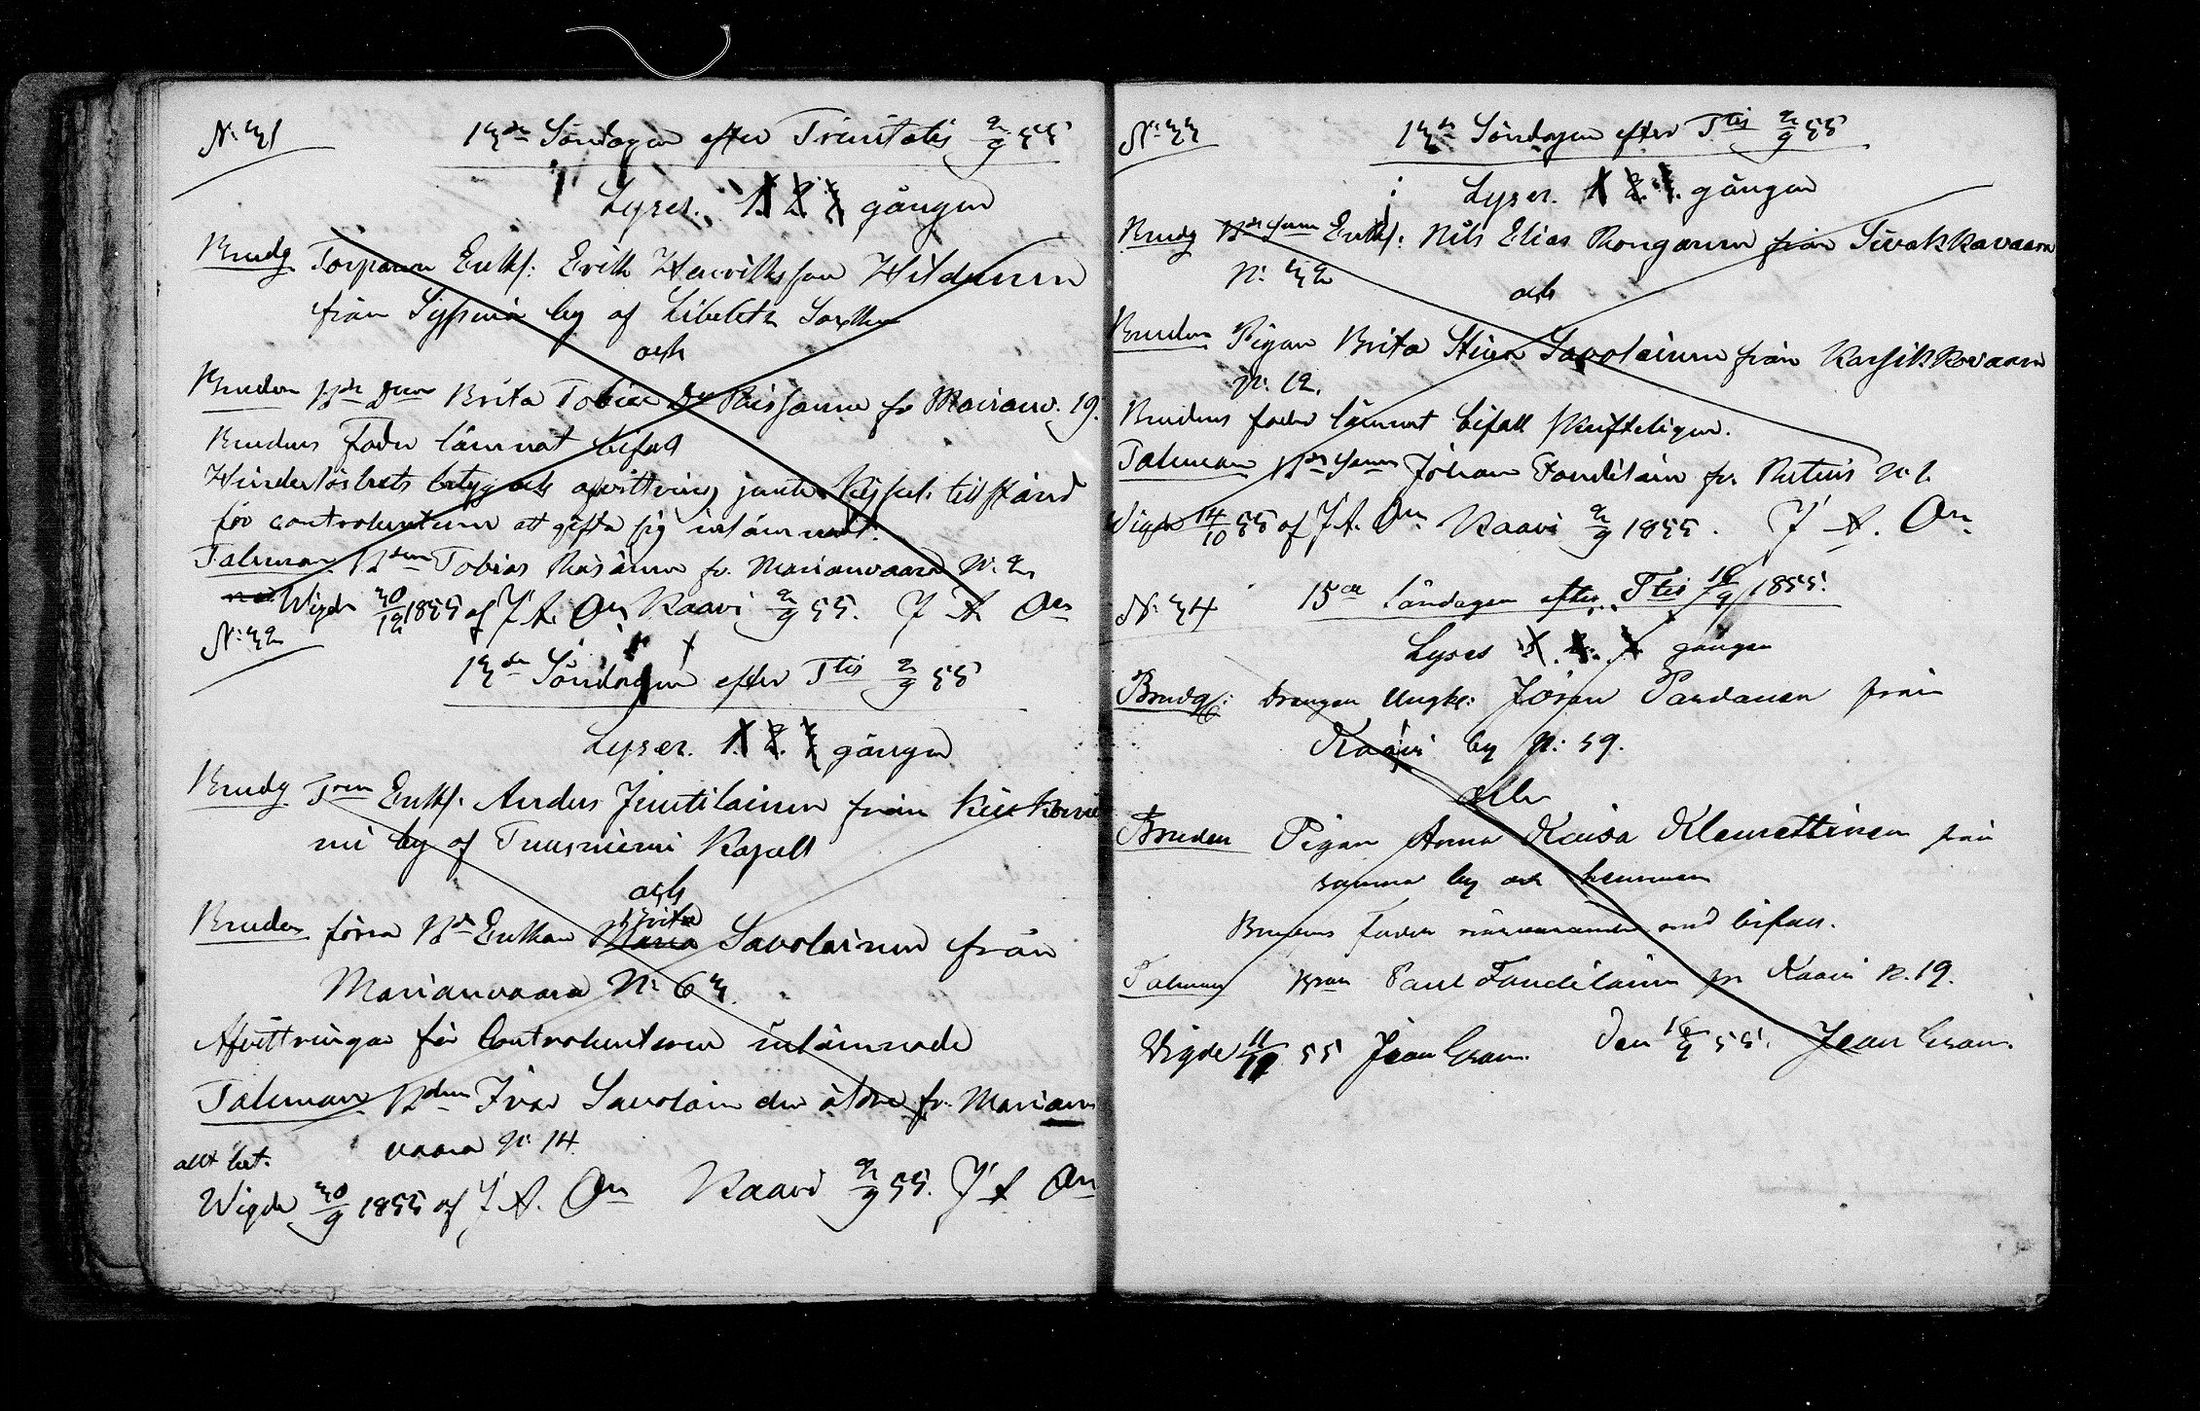 N: 31
13de Söndagen efter Trinitatis 2/9 55
Lyses. 1. 2. 3 gången
Brudg Torparen Enkl: Erik Henriksson Hildunen
från Sysmä by af Libelits Socken
och
Bruden Bde Dren Brita Tobiae Dr Räisänen fr Marianv. 19.
Brudens Fader lämnat bifall
Hinderlöshets betyg och afvittring jemte tillstånd
för contrahenterne att gifta sig inlämnadt.
Talman Bden Tobias Räsänen fr. Marianvaara N: 2
Vigde 30/12 1855 af J. A. On Kaavi 2/9 55. J A On
N: 32
13de Söndagen efter Ttis 2/9 55
Lyses. 1. 2. 3 gången
Brudg Tren Enkl. Anders Juutilainen från
mi by af Tuusniemi Kapell
och
Brita
Bruden förra Bde Enkan Maria Savolainen från
Marianvaara N: 63
Afvittringar för Contrahenterne inlämnade
Talman Bden Ivar Savolain den äldre fr. Marian
vaara N: 14
allt bet.
Vigde 30/9 1855 af J. A. On Kaavi 2/9 55. J A On
N: 33
13de Söndagen efter Ttis 2/9 55
Lyses. 1 2. 3. gången
Brudg Bde Sonen Enkl: Nils Elias Rongainen från Sivakkavaara
N: 32
och
Bruden Pigan Brita Stina Savolainen från Karsikkovaara
N: 12.
Brudens fader lämnat bifall skrifteligen.
Talman Bde Sonen Johan Fondilain fr. N: 2
Vigde 14/10 55 af J A. On Kaavi 2/9 1855. J A. On
N: 34
15de Söndagen efter Ttis 16/9 1855.
Lyses 1. 2. 3 gången
Brudg: Drengen Ungk: Jöran Pardanen från
Kaavi by N: 59.
och
Bruden Pigan Anna Kaisa Klemettinen från
samma by och hemman
Brudens Fader närvarande med bifall.
Talman Bden Paul Fondilain fr Kaavi N. 19.
Vigde 11/11 55 Jean Cran. Den 16/9 55. Jean Cran.